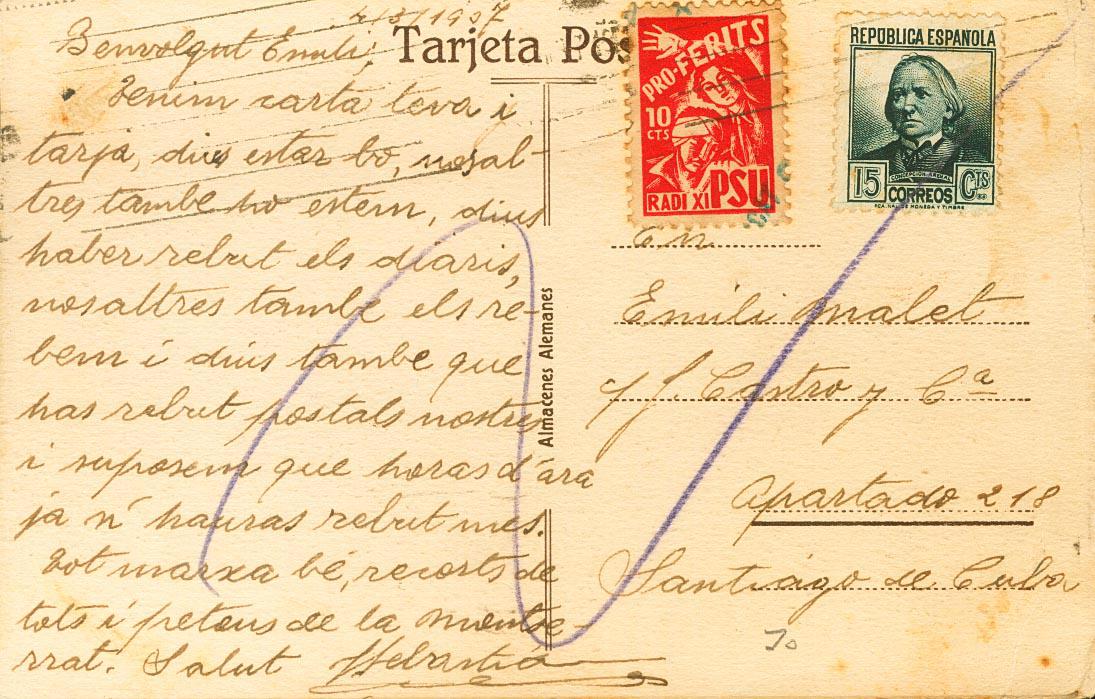 4/3/1937
Benvolgut Emili;
Tarjeta Pos
Tenim carta teva i
tarja, dius estar bo, nosal-
tres tambe ho estem, dius
haber rebut els diaris,
nosaltres tambe els re-
bem i dius tambe que
has rebut postals nostres
i suposem que horas d'ara
ja n' hauras rebut mes.
Tot marxa bé, recorts de
tots i petons de la Montse-
rrat. Salut Sebastiá
Almacenes Alemanes
PRO-FERITS
10
CTS
RADI XI PSU
REPÚBLICA ESPAÑOLA
CONCEPCIÓN ARENAL
15 CORREOS CTS
FCA. NAL. DE MONEDA Y TIMBRE
En
Emili Malet
Castro y Cª
Apartado 218
Santiago de Cuba